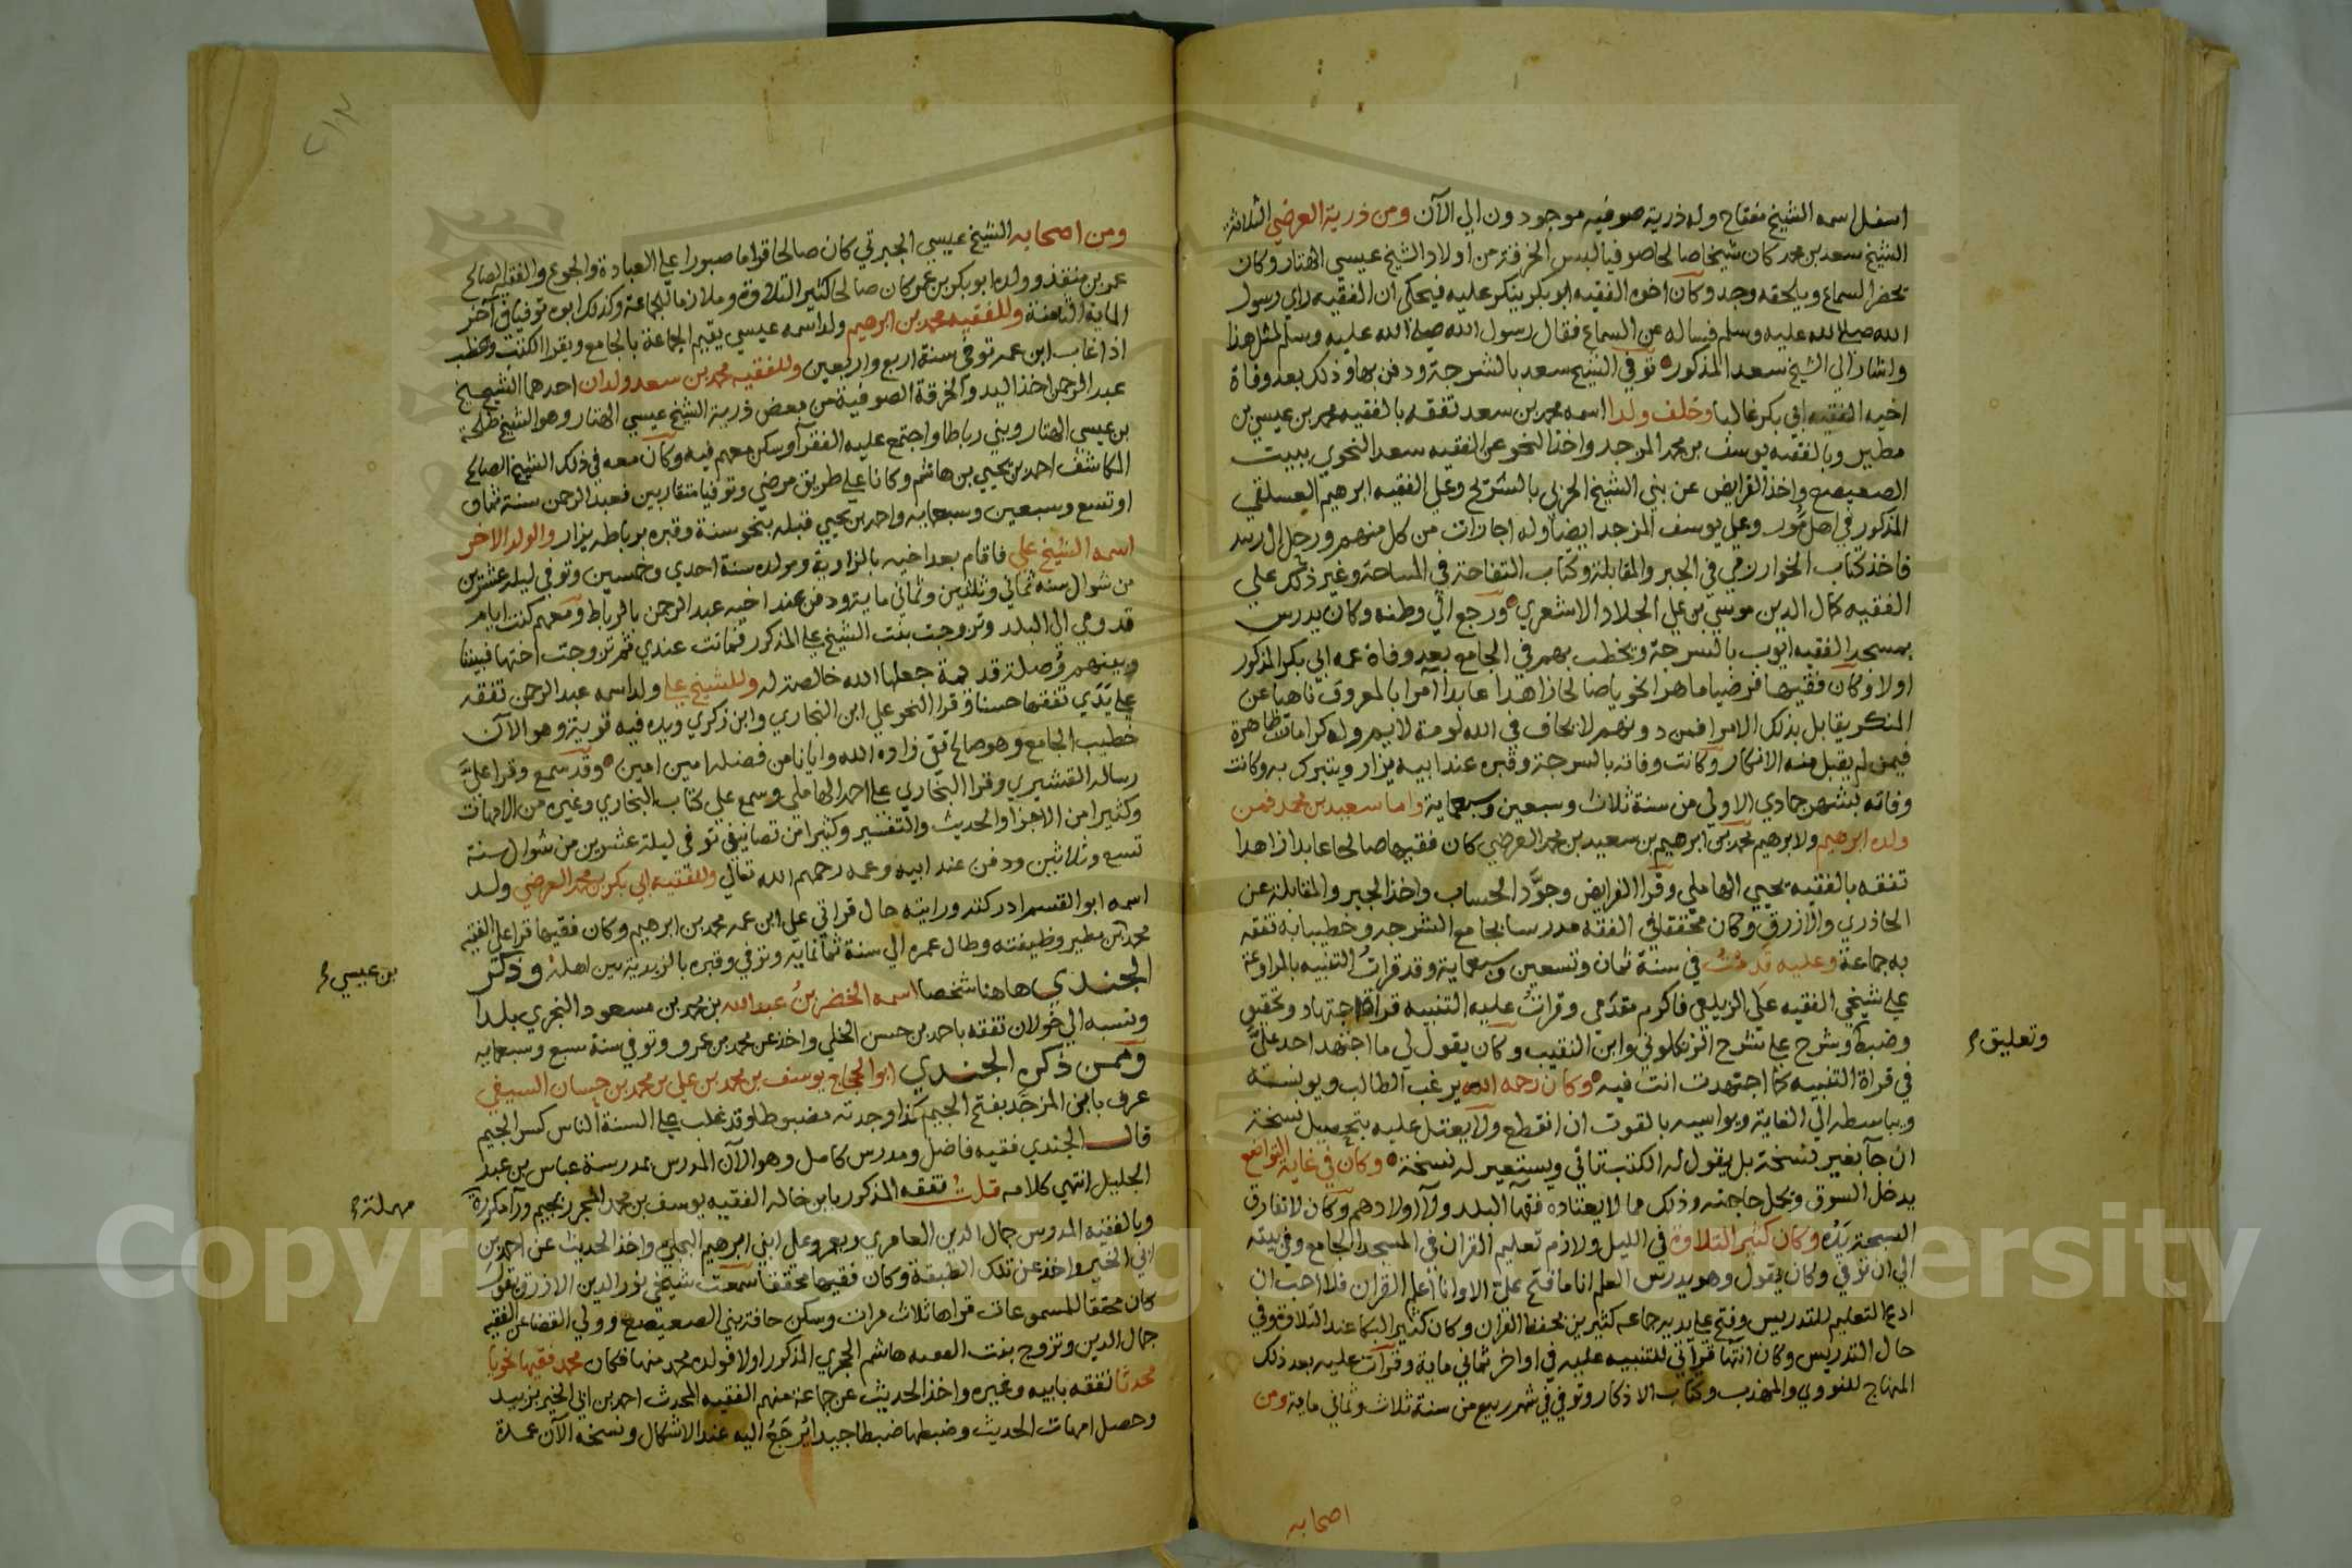 اسفل اسمه الشيخ مفتاح وله ذرية صوفيه موجودون الي الآن ومن ذرية العرضي الثلاثة
الشيخ سعد بن محمد كان شيخا صالحا صوفيا لبس الخرقة من اولاد الشيخ عيسي الهتار وكان
يحضر السماع ويلحقه وجد وكان اخوه الفقيه ابو بكر ينكر عليه فيحكي ان الفقيه راي رسول
الله صلي الله عليه وسلم فساله عن السماع فقال رسول الله صلي الله عليه وسلم لمثل هذا
واشار الي الشيخ سعد المذكور توفي الشيخ سعد بالشرجة ودفن بها وذلك بعد وفاة
اخيه الفقيه ابي بكر غالبا وخلف ولدا اسمه محمد بن سعد تفقه بالفقيه محمد بن عيسي بن
مطير وبالفقيه يوسف بن محمد المزجد واخذ النحو عن الفقيه سعد النحوي ببيت
الصعيصع واخذ الفرايض عن بني الشيخ الحربي بالشريح وعلي الفقيه ابرهيم العسلقي
المذكور في اصل مور وعلي يوسف المزجد ايضا وله اجازات من كل منهم ورحل الي زبيد
فاخذ كتاب الخوارزمي في الجبر والمقابلة وكتاب التفاحة في المساحة وغير ذلك علي
الفقيه كمال الدين موسي بن علي الجلاد الاشعري ورجع الي وطنه وكان يدرس
بمسجد الفقيه ايوب بالسرجة ويخطب بهم في الجامع بعد وفاة عمه ابي بكر المذكور
اولا وكان فقيها فرضيا ماهرا نحويا صالحا زاهدا عابدا آمرا بالمعروف ناهيا عن
المنكر يقابل بذلك الامرا فمن دونهم لا يخاف في الله لومة لايم وله كرامات ظاهرة
فيمن لم يقبل منه الانكار وكانت وفاته بالسرجة وقبره عند ابيه يزار ويتبرك به وكانت
وفاته لشهر جمادي الاولي من سنة ثلاث وسبعين وسبعماية واما سعيد بن محمد فمن
ولده ابرهيم ولابرهيم محمد بن ابرهيم بن سعيد بن محمد العرضي كان فقيها صالحا عابدا زاهدا
تفقه بالفقيه يحيي الهاملي وقرا الفرايض وجوَّد الحساب واخذ الجبر والمقابلة عن
الحاذري والازرق وكان محققا في الفقه مدرسا بجامع الشرجه وخطيبا به تفقه
به جماعة وعليه قدمت في سنة ثمان وتسعين وسبعماية وقد قرات التنبيه بالمراوعة
علي شيخي الفقيه علي الزيلعي فاكرم مقدمي وقرات عليه التنبيه قراة اجتهاد وتحقيق
وضبط وشرح علي شرح الزنكلوني وابن النقيب وكان يقول لي ما اجتهد احد عليَّ
في قراة التنبيه كما اجتهدت انت فيه وكان رحمه الله يرغب الطالب ويونسه
ويباسطه الي الغاية ويواسيه بالقوت ان انقطع ولا يعتل عليه بتحصيل نسخة
ان جا بغير نسخة بل يقول له الكتب تاتي ويستعير له نسخة وكان في غاية التواضع
يدخل السوق ويحمل حاجته وذلك مما لا يعتاده فقها البلد ولا اولادهم وكان لا تفارق
السبحة يَدَه وكان كثير التلاوة في الليل ولازم تعليم القران في المسجد الجامع وفي بيته
الي ان توفي وكان يقول وهو يدرس العلم انا ما فتح علي الا وانا اعلم القران فلا احب ان
ادع التعليم للتدريس وفتح علي يديه جماعه كثيرين بحفظ القران وكان كثير البكا عند التلاوة وفي
حال التدريس وكان انتها قرآتي للتنبيه عليه في اواخر ثماني ماية وقرات عليه بعد ذلك
المنهاج للنووي والمهذب وكتاب الاذكار وتوفي في شهر ربيع من سنة ثلاث وثماني ماية ومن
اصحابه
وتعليق
ومن اصحابه الشيخ عيسي الجبرتي كان صالحا قواما صبورا علي العبادة والجوع والفقيه الصالح
عمر بن منقذ وولده ابو بكر بن عمر كان صالحا كثير التلاوة وملازما للجماعة وكذلك ابوه توفيا في آخر
الماية الثامنة وللفقيه محمد بن ابرهيم ولد اسمه عيسي يقيم الجماعة بالجامع ويقرا الكتب ويخطب
اذا غاب ابن عمه توفي سنة اربع واربعين وللفقيه محمد بن سعد ولدان احدهما الشيخ
عبد الرحمن اخذ اليد والخرقة الصوفية من بعض ذرية الشيخ عيسي الهتار وهو الشيخ طلحة
بن عيسي الهتار وبني رباطا واجتمع عليه الفقرآ وسكن معهم فيه وكان معه في ذلك الشيخ الصالح
المكاشف احمد بن يحيي بن هاشم وكانا علي طريق مرضي وتوفيا متقاربين فعبد الرحمن سنة ثمان
او تسع وسبعين وسبعمايه واحمد بن يحيي قبله بنحو سنة وقبره برباطه يزار والولد الاخر
اسمه الشيخ علي فاقام بعد اخيه بالزاوية ومولده سنة احدي وخمسين وتوفي ليلة عشرين
من شوال سنه ثماني وثلاثين وثماني ماية ودفن عند اخيه عبد الرحمن بالرباط ومعهم كنت ايام
قدومي الي البلد وتزوجت بنت الشيخ علي المذكور فماتت عندي ثم تزوجت اختها فبيننا
وبينهم وُصلة قديمة جعلها الله خالصة له وللشيخ علي ولد اسمه عبد الرحمن تفقه
علي يَدَي تفقها حسنا وقرا النحو علي ابن النجاري وابن زكري ويده فيه قوية وهو الآن
خطيب الجامع وهو صالح تقي زاده الله وايانا من فضله امين امين وقد سمع وقرا عليَّ
رسالة القشيري وقرا البخاري علي احمد الهاملي وسمع علي كتاب البخاري وغيره من الامهات
وكثيرا من الاجزا والحديث والتفسير وكثيرا من تصانيفي توفي ليلة عشرين من شوال سنة
تسع وثلاثين ودفن عند ابيه وعمه رحمهم الله تعالي وللفقيه ابي بكر بن محمد العرضي ولد
اسمه ابو القسم ادركته ورايته حال قراتي علي ابن عمه محمد بن ابرهيم وكان فقيها قرا علي الفقيه
محمد بن مطير وظيفته وطال عمره الي سنة ثمانماية وتوفي وقبره بالزيدية بين اهله وذكر
الجندي هاهنا شخصا اسمه الخضر بنُ عبد الله بن محمد بن مسعود النجري بلدا
ونسبه الي خولان تفقه باحمد بن حسن الخلي واخذ عن محمد بن عمرو وتوفي سنة سبع وسبعمايه
وممن ذكره الجندي ابو الحجاج يوسف بن محمد بن علي بن محمد بن حسان السيفي
عرف بابن المزجَد بفتح الجيم كذا وجدته مضبوطا وقد غلب علي السنة الناس كسر الجيم
قال الجندي فقيه فاضل ومدرس كامل وهو الآن المدرس بمدرسة عباس بن عبد
الجليل انتهي كلامه قلت تفقه المذكور بابن خاله الفقيه يوسف بن محمد المجرر بجيم ورآ مكررة
وبالفقيه المدرس جمال الدين العامري وبعمرو علي ابني ابرهيم البجلي واخذ الحديث عن احمد بن
ابي الخير واخذ عن تلك الطبقة وكان فقيها محققا سمعت شيخي نور الدين الازرق يقول
كان محققا للمسموعات قراها ثلاث مرات وسكن حافة بني الصعيصع وولي القضا عن الفقيه
جمال الدين وتزوج بنت الفقيه هاشم الحجري المذكور اولا فولده محمد منها فكان محمد فقيها نحويا
محدثا تفقه بابيه وغيره واخذ الحديث عن جماعة منهم الفقيه المحدث احمد بن ابي الخير بزبيد
وحصل امهات الحديث وضبطها ضبطا جيدا يُرجَعُ اليه عند الاشكال ونسخه الآن عمدة
بن عيسي
مهملة
٢١٢
Copyright © King Saud University